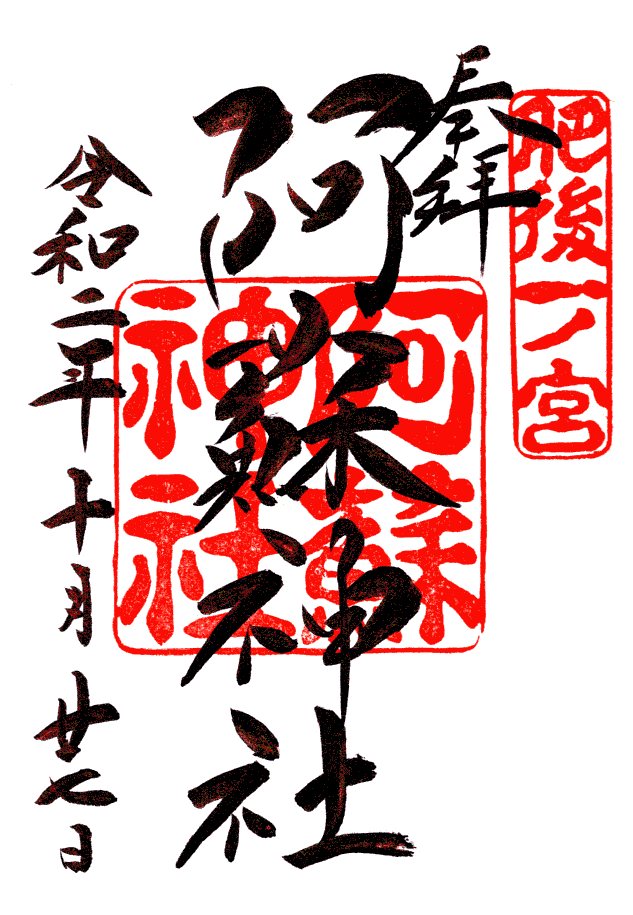 肥後一ノ宮
奉拝
阿蘇神社
阿蘇
神社
令和二年十月廿七日